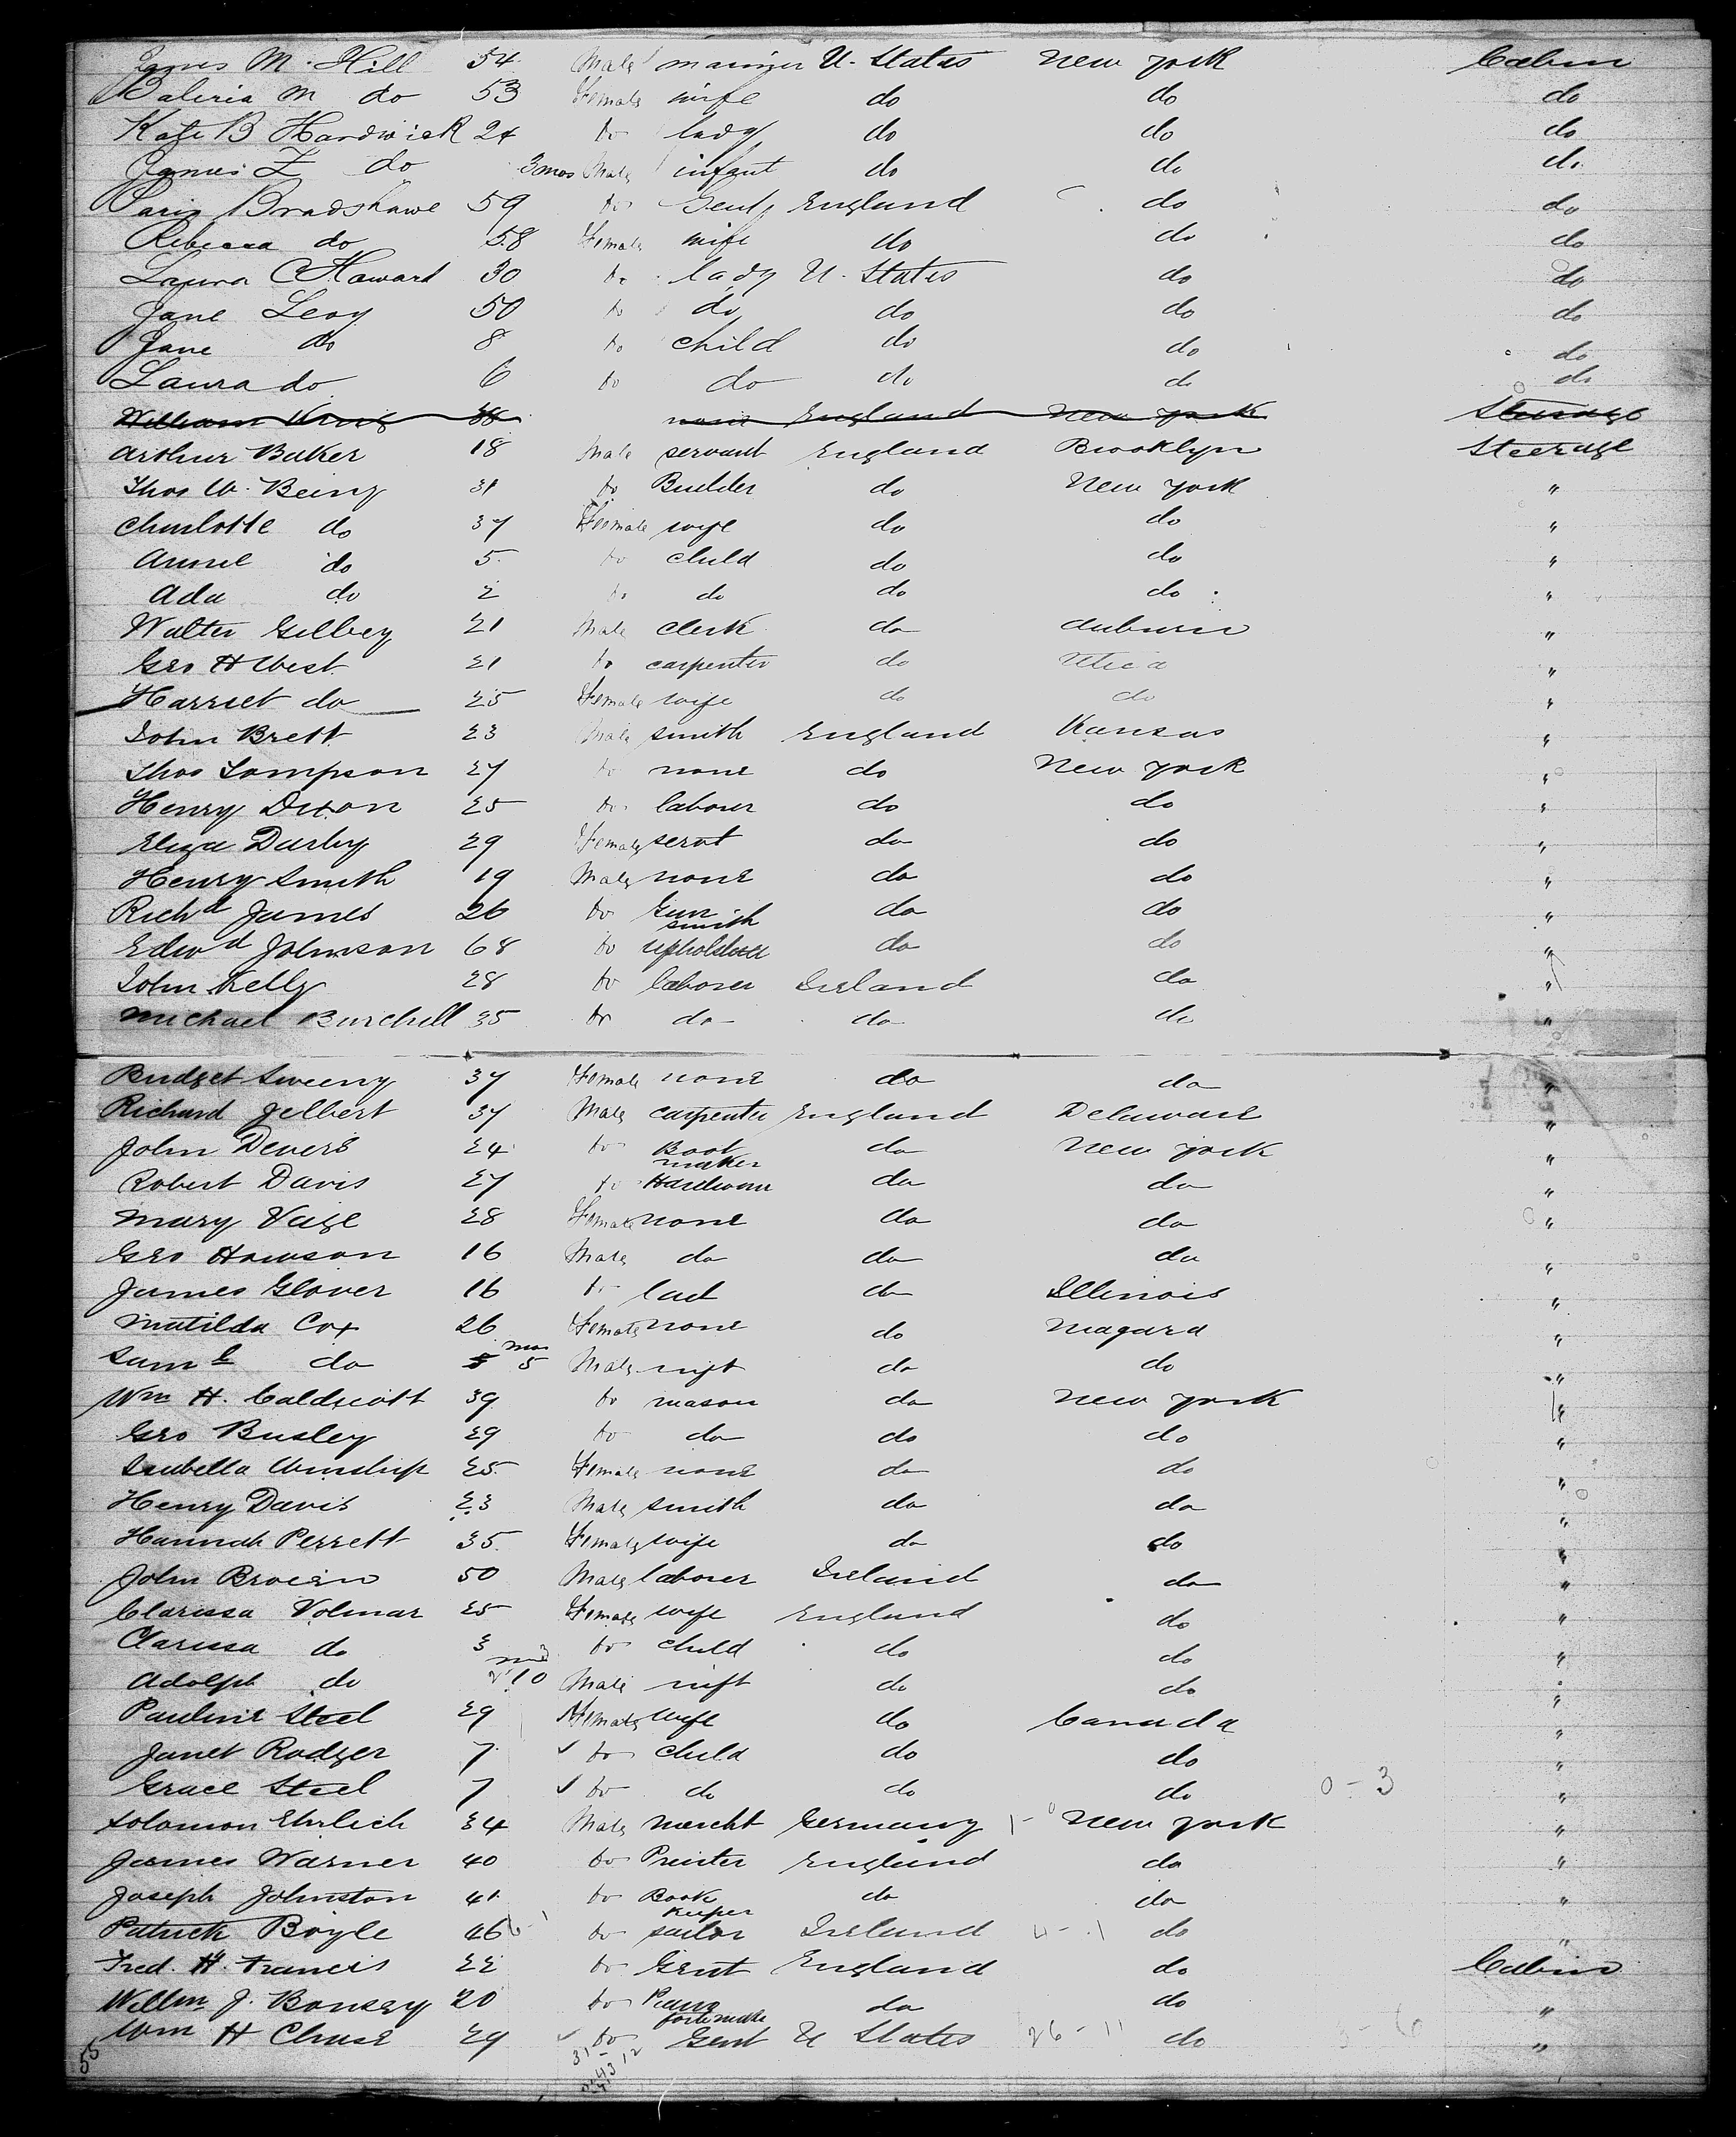 James M. Hill 54 Male U. States New York Cabin
M do 53 Female wife do do do
Kate B Hardwick 24 do lady do do do
James Z do 3 mos Male infant do do do
Bradshawe 59 do Gent England do do
Rebecca do 58 Female wife do do do
Laura C Howard 30 do lady U. States do do
Jane Levy 50 do do do do do
Jane do 8 do child do do do
Laura do 6 do do do do do
William King 38 none England New York Steerage
Arthur Baker 18 Male servant England Brooklyn Steerage
Thos W. Being 31 do Builder do New York "
Charlotte do 37 Female wife do do "
Annie do 5 do child do do "
Ada do 2 do do do do "
Walter Gilbey 21 Male clerk do Auburn "
Geo H West 21 do carpenter do Utica "
Harriet do 25 Female wife do do "
John Brett 23 Male smith England Kansas "
Thos Tompson 27 do none do New York "
Henry Dixon 25 do labourer do do "
Eliza Darby 29 Female servt do do "
Henry Smith 19 Male none do do "
Richd James 26 do Gun smith do do "
Edwd Johnson 68 do upholsterer do do "
John Kelly 28 do laborer Ireland do "
Michael Burchell 35 do do do do "
Bridget Sweeny 37 Female none do do "
Richard Jelbert 37 Male carpenter England Delaware "
John Devers 24 do Boot maker do New York "
Robert Davis 27 do Hardware do do "
Mary Vage 28 Female none do do "
Geo Howson 16 Male do do do "
James Glover 16 do lad do Illinois "
Matilda Cox 26 Female none do Niagara "
Saml do 5 mos Male inft do do "
Wm H. Caldicott 39 do mason do New York "
Geo Busley 29 do do do do "
Isabella Winship 25 Female none do do "
Henry Davis 23 Male smith do do "
Hannah Perrett 35 Female wife do do "
John Brown 50 Male laborer Ireland do "
Clarissa Volmar 25 Female wife England do "
Clarissa do 3 do child do do "
Adolph do 10 mos Male inft do do "
Pauline Steel 29 Female wife do Canada "
Janet Rodger 7 do child do do "
Grace Steel 7 do do do do 0-3 "
Solomon Ehrlich 34 Male mercht Germany New York "
James Warner 40 do Printer England do "
Joseph Johnston 41 do Book keeper do do "
Patrick Boyle 46 do sailor Ireland 4-1 do "
Fred. H. Francis 22 do Gent England do Cabin
Willm J. Bonsey 20 do Piano forte maker do do "
Wm H Chase 29 do Gent U States 26-11 do 3-6 "
55